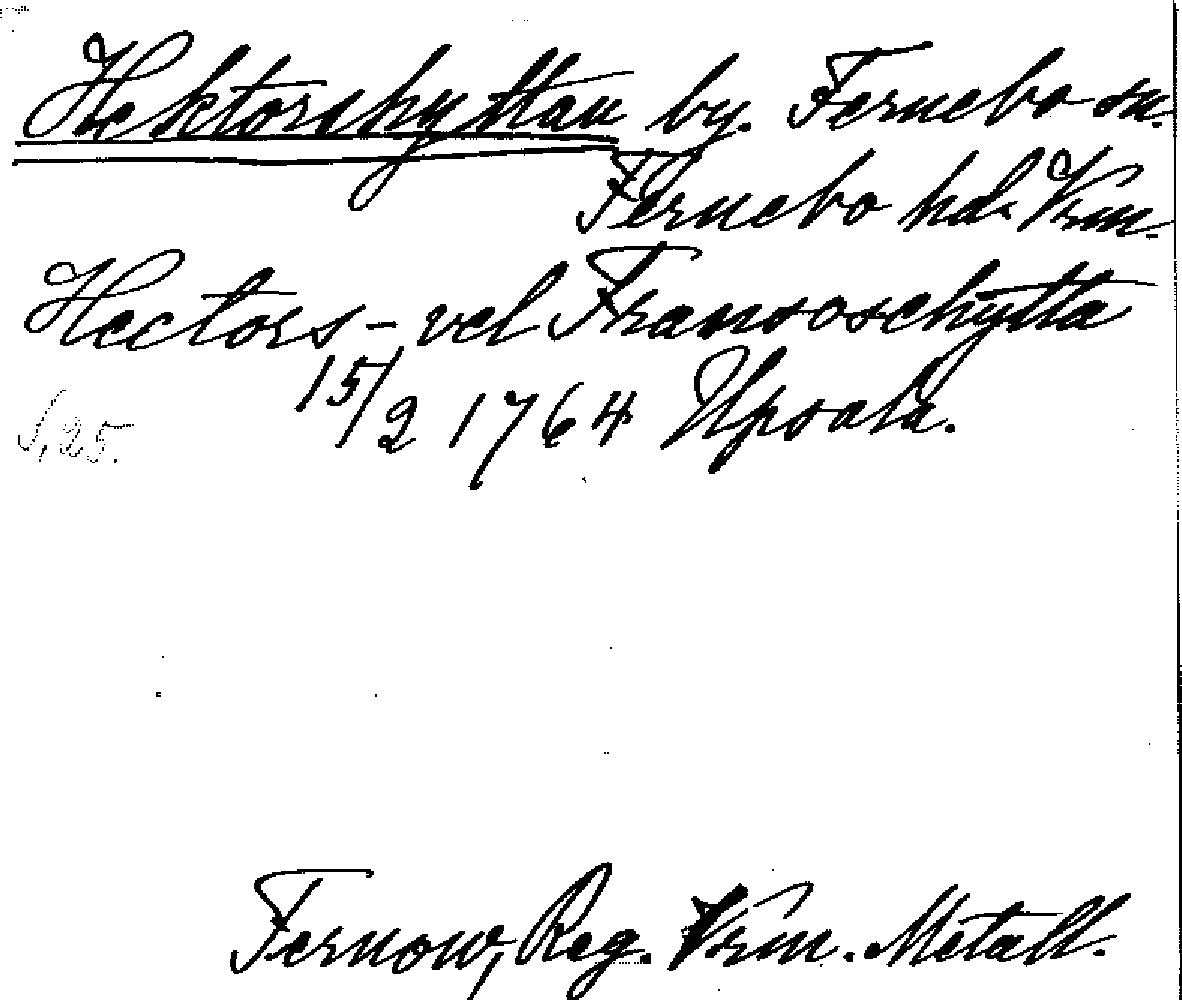 Hektorshyttan by. Fernebo sn.
Fernebo hd. Vrm.
Hectors- vel Fransoschytta
15/2 1764 Upsala.
S. 25.
Fernow, Reg. Vrm. Metall.